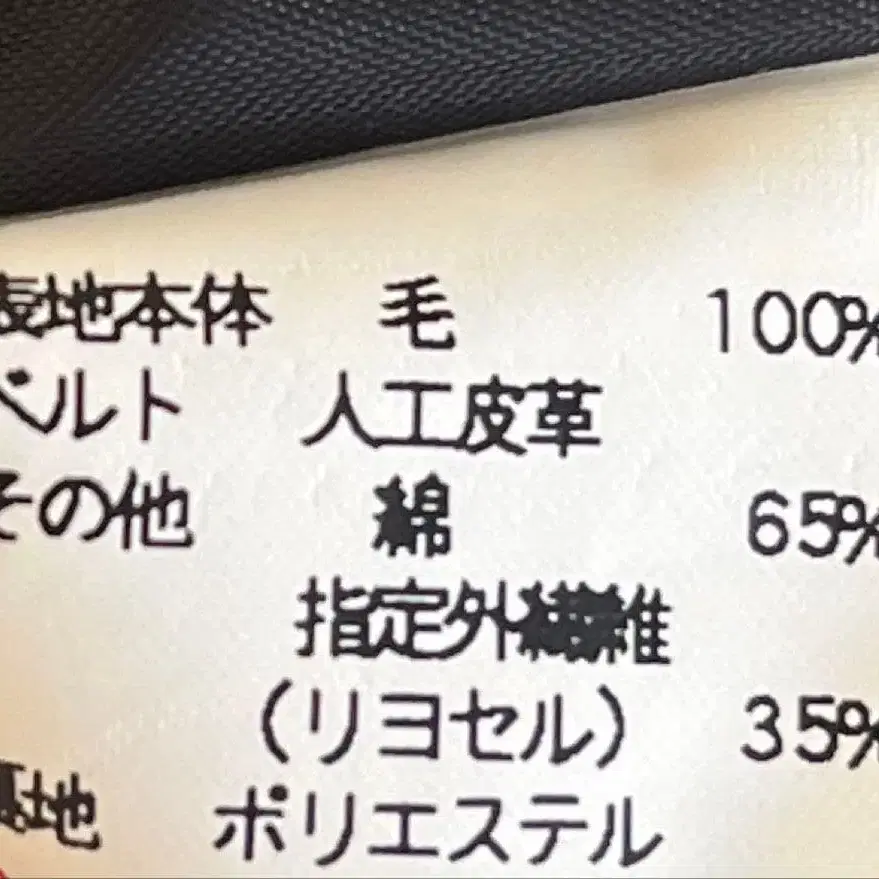 表地本体 毛 100%
ベルト 人工皮革
その他 綿 65%
指定外繊維
(リヨセル) 35%
裏地 ポリエステル